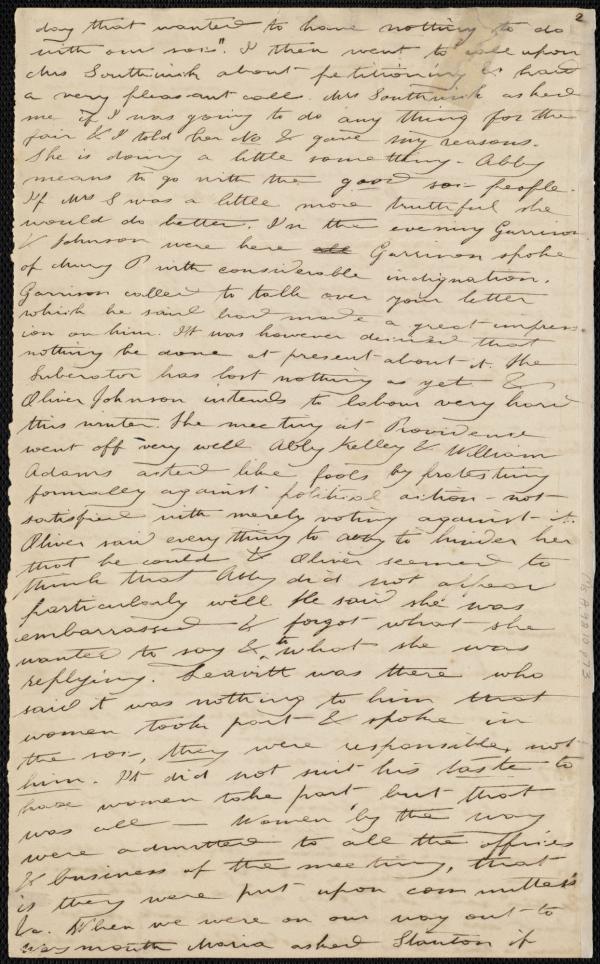 2
day that wanted to have nothing to do
with our soc". I then went to call upon
Mrs Southwick about petitioning & had
a very pleasant call. Mrs Southwick asked
me if I was going to do any thing for the
fair & I told her No & gave my reasons.
She is doing a little something - Abby
means to go with the good soc- people.
If Mrs S was a little more truthful she
would do better. In the evening Garrison
& Johnson were here Garrison spoke
of Mary P with considerable indignation.
Garrison called to talk over your letter
which he said had made a great impress-
ion on him. It was however desired that
nothing be done at present about it. The
Liberator has lost nothing as yet &
Oliver Johnson intends to labour very hard
this winter. The meeting at Providence
went off very well Abby Kelley & William
Adams acted like fools by protesting
formally against political action - not
satisfied with merely voting against it.
Oliver said everything to Abby to hinder her
that he could & Oliver seemed to
think that Abby did not appear
particularly well. He said she was
embarrassed & forgot what she
wanted to say & to what she was
replying. Leavitt was there who
said it was nothing to him that
women took part & spoke in
the soc-, they were responsible, not
him. It did not suit his taste to
have women take part but that
was all — Women by the way
were admitted to all the offices
& business of the meeting, that
is they were put upon committees
&c. When we were on our way out to
Weymouth Maria asked Stanton if